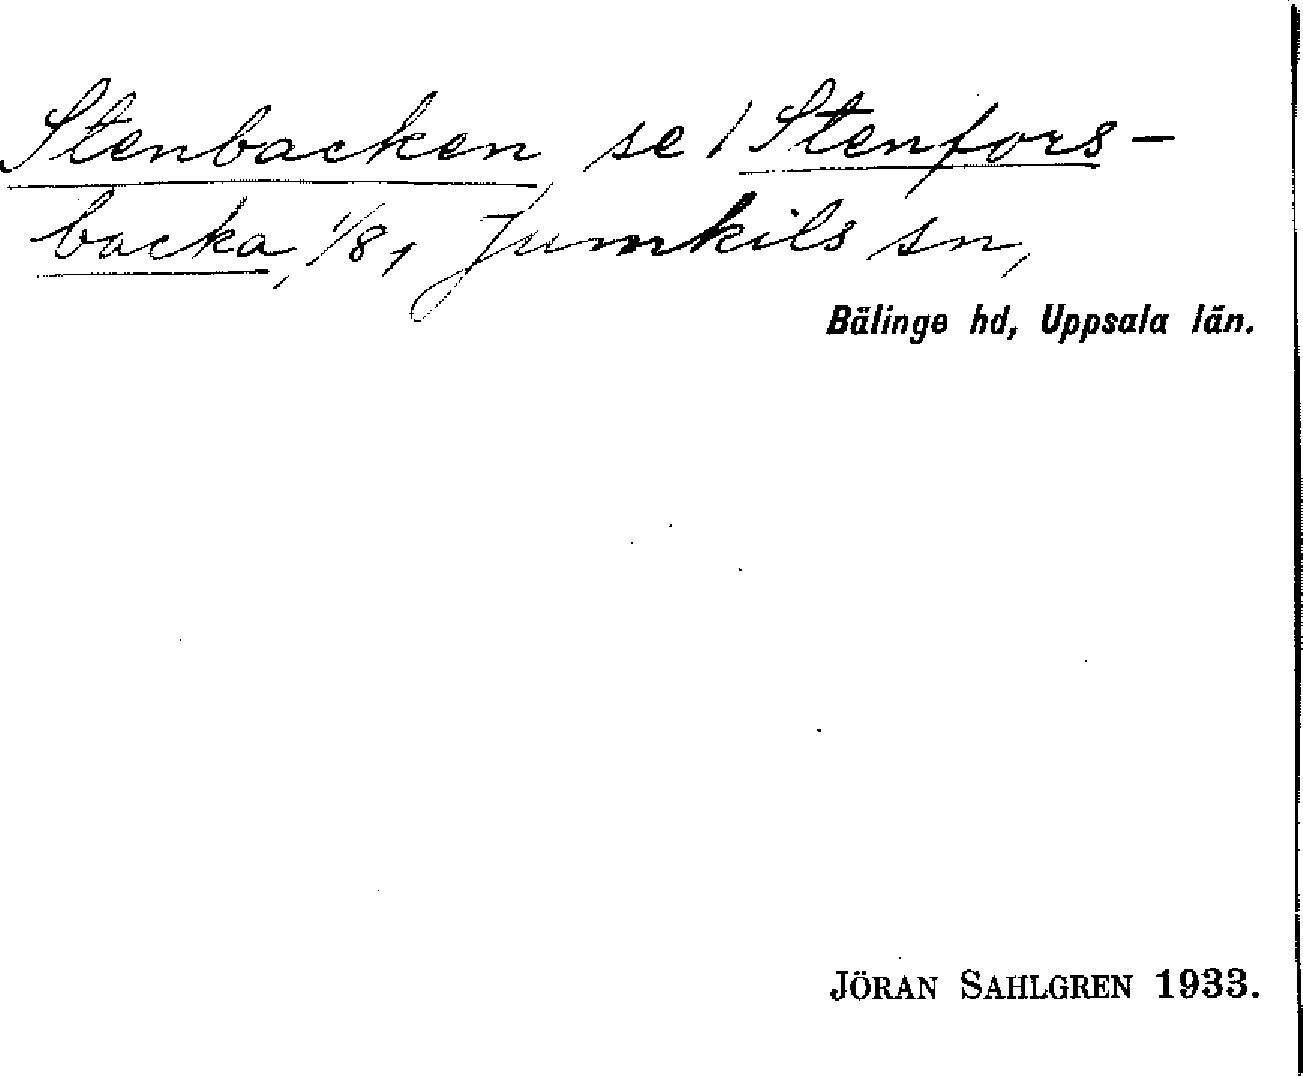 Stenbacken se / Stenfors-
backa, 1/8, Jumkils sn,
Bälinge hd, Uppsala län.
JÖRAN SAHLGREN 1933.